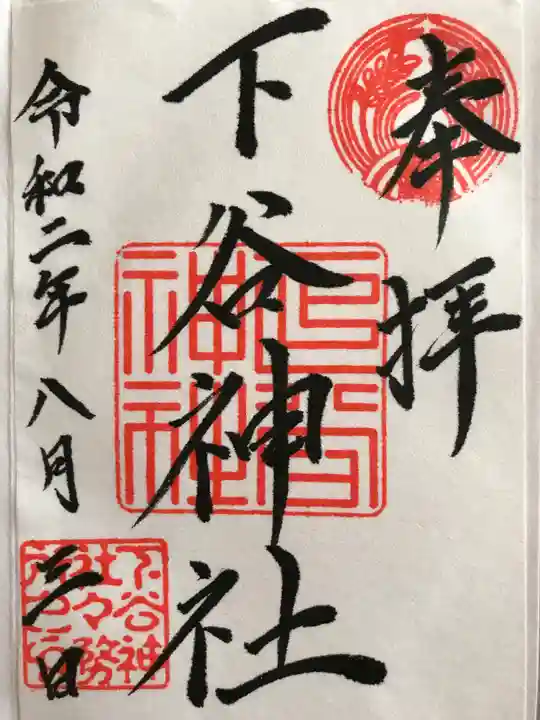 奉拝
下谷神社
令和二年八月三日
下谷神社
下谷神
社々務
所之信